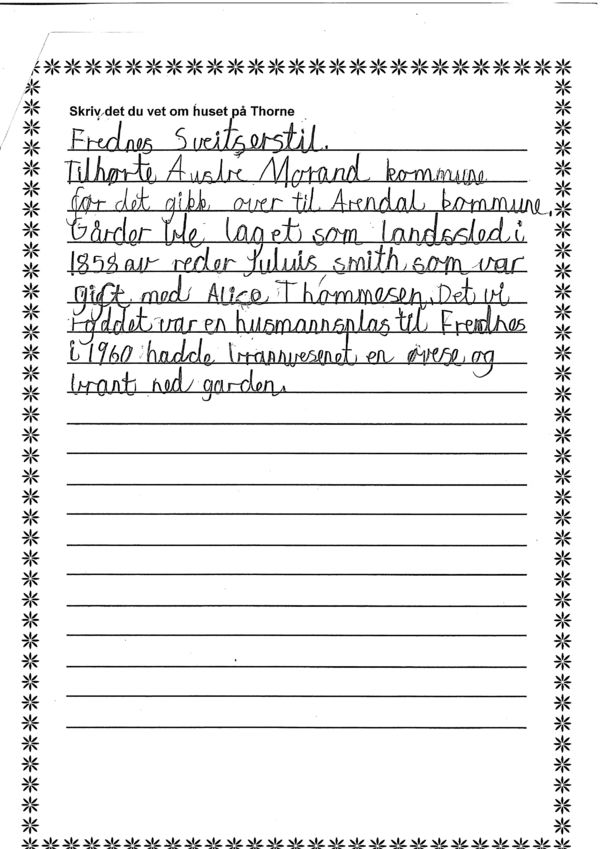 Skriv det du vet om huset på Thorne
Frednes Sveitserstil.
Tilhørte Austre Morand kommune
før det gikk over til Arendal kommune.
Gårder ble laget som landssled i
1858 av reder Juluis smith som var
gift med Alice Thommesen. Det vi
ryddet var en husmannsplas til Frerdnes
i 1960 hadde brannvesenet en øvese og
brant ned garden.